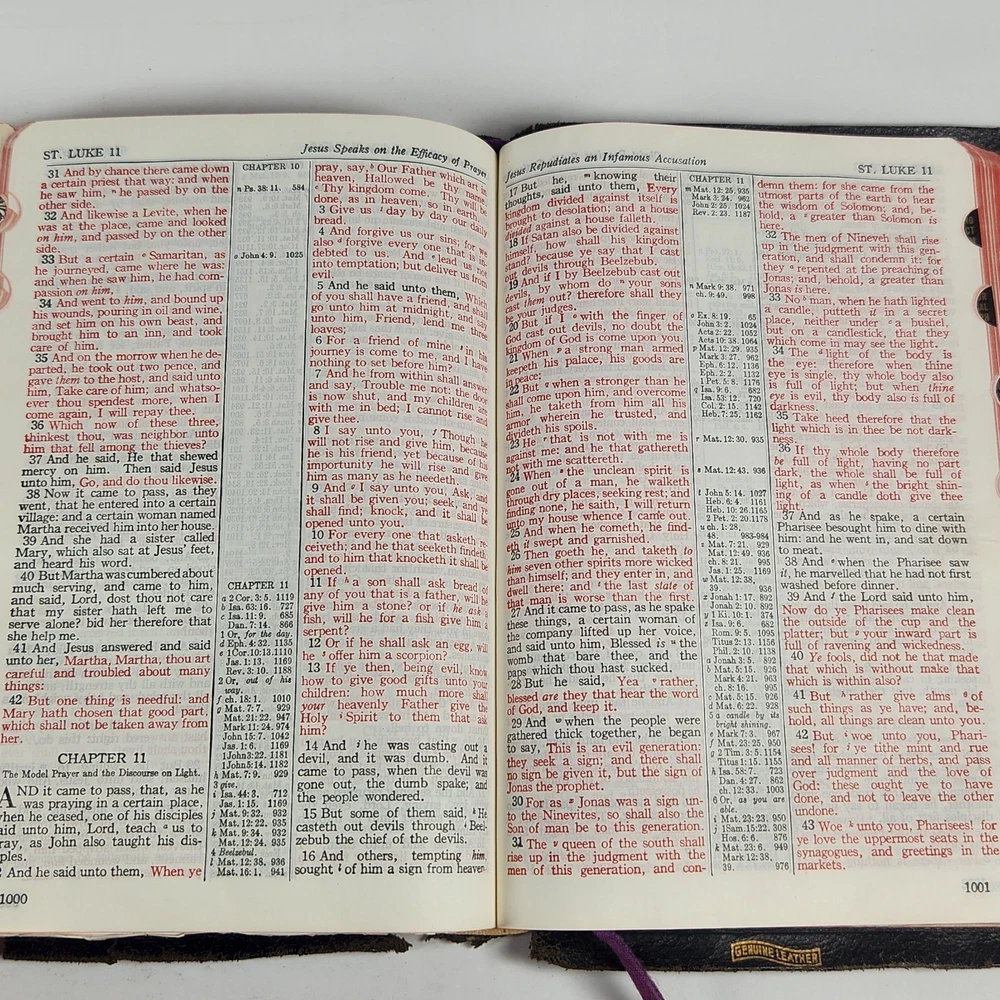 ST. LUKE 11
Jesus Speaks on the Efficacy of Prayer
31 And by chance there came down
a certain priest that way: and when
he saw him, n he passed by on the
other side.
32 And likewise a Levite, when he
was at the place, came and looked
on him, and passed by on the other
side.
33 But a certain o Samaritan, as
he journeyed, came where he was:
and when he saw him, he had com-
passion on him,
34 And went to him, and bound up
his wounds, pouring in oil and wine,
and set him on his own beast, and
brought him to an inn, and took
care of him.
35 And on the morrow when he de-
parted, he took out two pence, and
gave them to the host, and said unto
him, Take care of him; and whatso-
ever thou spendest more, when I
come again, I will repay thee.
36 Which now of these three,
thinkest thou, was neighbor unto
him that fell among the thieves?
37 And he said, He that shewed
mercy on him. Then said Jesus
unto him, Go, and do thou likewise.
38 Now it came to pass, as they
went, that he entered into a certain
village: and a certain woman named
Martha received him into her house.
39 And she had a sister called
Mary, which also sat at Jesus' feet,
and heard his word.
40 But Martha was cumbered about
much serving, and came to him,
and said, Lord, dost thou not care
that my sister hath left me to
serve alone? bid her therefore that
she help me.
41 And Jesus answered and said
unto her, Martha, Martha, thou art
careful and troubled about many
things:
42 But one thing is needful: and
Mary hath chosen that good part,
which shall not be taken away from
her.
CHAPTER 11
The Model Prayer and the Discourse on Light.
AND it came to pass, that, as he
was praying in a certain place,
when he ceased, one of his disciples
said unto him, Lord, teach a us to
pray, as John also taught his dis-
ples.
And he said unto them, When ye
1000
CHAPTER 10
n Ps. 38:11. 584
o John 4:9. 1025
CHAPTER 11
a 2 Cor. 3:5. 1119
b Isa. 63:16. 727
c Isa. 11:9. 685
Dan. 7:14. 866
1 Or, for the day.
d Eph. 4:32. 1135
e 1 Cor. 10:13. 1110
Jas. 1:13. 1169
Rev. 3:10. 1188
2 Or, out of his
way.
f ch. 18:1. 1010
g Mat. 7:7. 929
Mat. 21:22. 947
Mark 11:24. 974
John 15:7. 1042
Jas. 1:6. 1169
1 John 3:22. 1181
1 John 5:14. 1182
h Mat. 7:9. 929
3 give.
i Isa. 44:3. 712
Jas. 1:15. 1169
j Mat. 9:32. 932
Mat. 12:22. 935
k Mat. 9:34. 932
Mat. 12:24. 935
4 Beelzebul.
l Mat. 12:38. 936
Mat. 16:1. 941
pray, say, b Our Father which art in
heaven, Hallowed be thy name.
c Thy kingdom come. Thy will be
done, as in heaven, so in earth.
3 Give us 1 day by day our daily
bread.
4 And forgive us our sins; for we
also d forgive every one that is in-
debted to us. And e lead us not
into temptation; but deliver us from
evil.
5 And he said unto them, Which
of you shall have a friend, and shall
go unto him at midnight, and say
unto him, Friend, lend me three
loaves;
6 For a friend of mine 2 in his
journey is come to me, and I have
nothing to set before him?
7 And he from within shall answer
and say, Trouble me not: the door
is now shut, and my children are
with me in bed; I cannot rise and
give thee.
8 I say unto you, f Though he
will not rise and give him, because
he is his friend, yet because of his
importunity he will rise and give
him as many as he needeth.
9 And g I say unto you, Ask, and
it shall be given you; seek, and ye
shall find; knock, and it shall be
opened unto you.
10 For every one that asketh re-
ceiveth; and he that seeketh findeth;
and to him that knocketh it shall be
opened.
11 If h a son shall ask bread of
any of you that is a father, will he
give him a stone? or if he ask a
fish, will he for a fish give him a
serpent?
12 Or if he shall ask an egg, will
he 3 offer him a scorpion?
13 If ye then, being evil, know
how to give good gifts unto your
children: how much more shall
your heavenly Father give the
Holy i Spirit to them that ask
him?
14 And j he was casting out a
devil, and it was dumb. And it
came to pass, when the devil was
gone out, the dumb spake; and
the people wondered.
15 But some of them said, k He
casteth out devils through 4 Beel-
zebub the chief of the devils.
16 And others, tempting him,
sought l of him a sign from heaven.
Jesus Repudiates an Infamous Accusation
ST. LUKE 11
17 But he, m knowing their
thoughts, said unto them, Every
kingdom divided against itself is
brought to desolation; and a house
divided against a house falleth.
18 If Satan also be divided against
himself, how shall his kingdom
stand? because ye say that I cast
out devils through Beelzebub.
19 And if I by Beelzebub cast out
devils, by whom do n your sons
cast them out? therefore shall they
be your judges.
20 But if I o with the finger of
God cast out devils, no doubt the
kingdom of God is come upon you.
21 When p a strong man armed
keepeth his palace, his goods are
in peace:
22 But q when a stronger than he
shall come upon him, and overcome
him, he taketh from him all his
armor wherein he trusted, and
divideth his spoils.
23 He r that is not with me is
against me: and he that gathereth
not with me scattereth.
24 When s the unclean spirit is
gone out of a man, he walketh
through dry places, seeking rest; and
finding none, he saith, I will return
unto my house whence I came out.
25 And when he cometh, he find-
eth it swept and garnished.
26 Then goeth he, and taketh to
him seven other spirits more wicked
than himself; and they enter in, and
dwell there: and t the last state of
that man is worse than the first.
27 And it came to pass, as he spake
these things, a certain woman of
the company lifted up her voice,
and said unto him, Blessed is u the
womb that bare thee, and the
paps which thou hast sucked.
28 But he said, Yea v rather,
blessed are they that hear the word
of God, and keep it.
29 And w when the people were
gathered thick together, he began
to say, This is an evil generation:
they seek a sign; and there shall
no sign be given it, but the sign of
Jonas the prophet.
30 For as x Jonas was a sign un-
to the Ninevites, so shall also the
Son of man be to this generation.
31 The y queen of the south shall
rise up in the judgment with the
men of this generation, and con-
CHAPTER 11
m Mat. 12:25. 935
Mark 3:24. 962
John 2:25. 1024
Rev. 2:23. 1187
n Mark 9:38. 971
ch. 9:49. 998
o Ex. 8:19. 65
John 3:2. 1024
Acts 2:22. 1052
Acts 10:38. 1064
p Mat. 12:29. 935
Mark 3:27. 962
Eph. 6:12. 1136
Eph. 2:2. 1132
1 Pet. 5:8. 1176
q Isa. 9:6. 682
Isa. 53:12. 720
Col. 2:15. 1142
Heb. 7:25. 1162
r Mat. 12:30. 935
s Mat. 12:43. 936
t John 5:14. 1027
Heb. 6:4. 1161
Heb. 10:26. 1165
2 Pet. 2:20. 1178
u ch. 1:28,
48. 983-984
v Mat. 7:21. 929
Mat. 12:49. 936
ch. 8:21. 995
Jas. 1:25. 1169
w Mat. 12:38,
39. 936
x Jonah 1:17. 892
Jonah 2:10. 892
y 1 Ki. 10:1. 374
z Isa. 9:6. 682
Rom. 9:5. 1095
Titus 2:13. 1156
Phil. 2:10. 1138
a Jonah 3:5. 892
b Mat. 5:15. 926
Mark 4:21. 963
ch. 8:16. 995
c Mat. 5:15. 926
d Mat. 6:22. 928
5 a candle by its
bright shining.
e Mark 7:3. 967
f Mat. 23:25. 950
g 2 Tim. 3:5. 1154
Titus 1:15. 1155
h Isa. 58:7. 723
Dan. 4:27. 862
ch. 12:33. 1003
6 Or, as you are
able.
i Mat. 23:23. 950
j 1 Sam. 15:22. 308
Hos. 6:6. 876
k Mat. 23:6. 949
Mark 12:38,
39. 976
demn them: for she came from the
utmost parts of the earth to hear
the wisdom of Solomon; and, be-
hold, a z greater than Solomon is
here.
32 The men of Nineveh shall rise
up in the judgment with this gen-
eration, and shall condemn it: for
they a repented at the preaching of
Jonas; and, behold, a greater than
Jonas is here.
33 No b man, when he hath lighted
a candle, putteth it in a secret
place, neither under c a bushel,
but on a candlestick, that they
which come in may see the light.
34 The d light of the body is
the eye: therefore when thine
eye is single, thy whole body also
is full of light; but when thine
eye is evil, thy body also is full of
darkness.
35 Take heed therefore that the
light which is in thee be not dark-
ness.
36 If thy whole body therefore
be full of light, having no part
dark, the whole shall be full of
light, as when 5 the bright shin-
ing of a candle doth give thee
light.
37 And as he spake, a certain
Pharisee besought him to dine with
him: and he went in, and sat down
to meat.
38 And e when the Pharisee saw
it, he marvelled that he had not first
washed before dinner.
39 And f the Lord said unto him,
Now do ye Pharisees make clean
the outside of the cup and the
platter; but g your inward part is
full of ravening and wickedness.
40 Ye fools, did not he that made
that which is without make that
which is within also?
41 But h rather give alms 6 of
such things as ye have; and, be-
hold, all things are clean unto you.
42 But i woe unto you, Phari-
sees! for j ye tithe mint and rue
and all manner of herbs, and pass
over judgment and the love of
God: these ought ye to have
done, and not to leave the other
undone.
43 Woe k unto you, Pharisees! for
ye love the uppermost seats in the
synagogues, and greetings in the
markets.
1001
GENUINE LEATHER